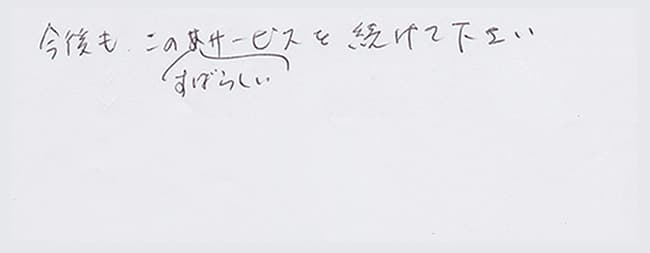 今後も、このサービスを続けて下さい
すばらしい